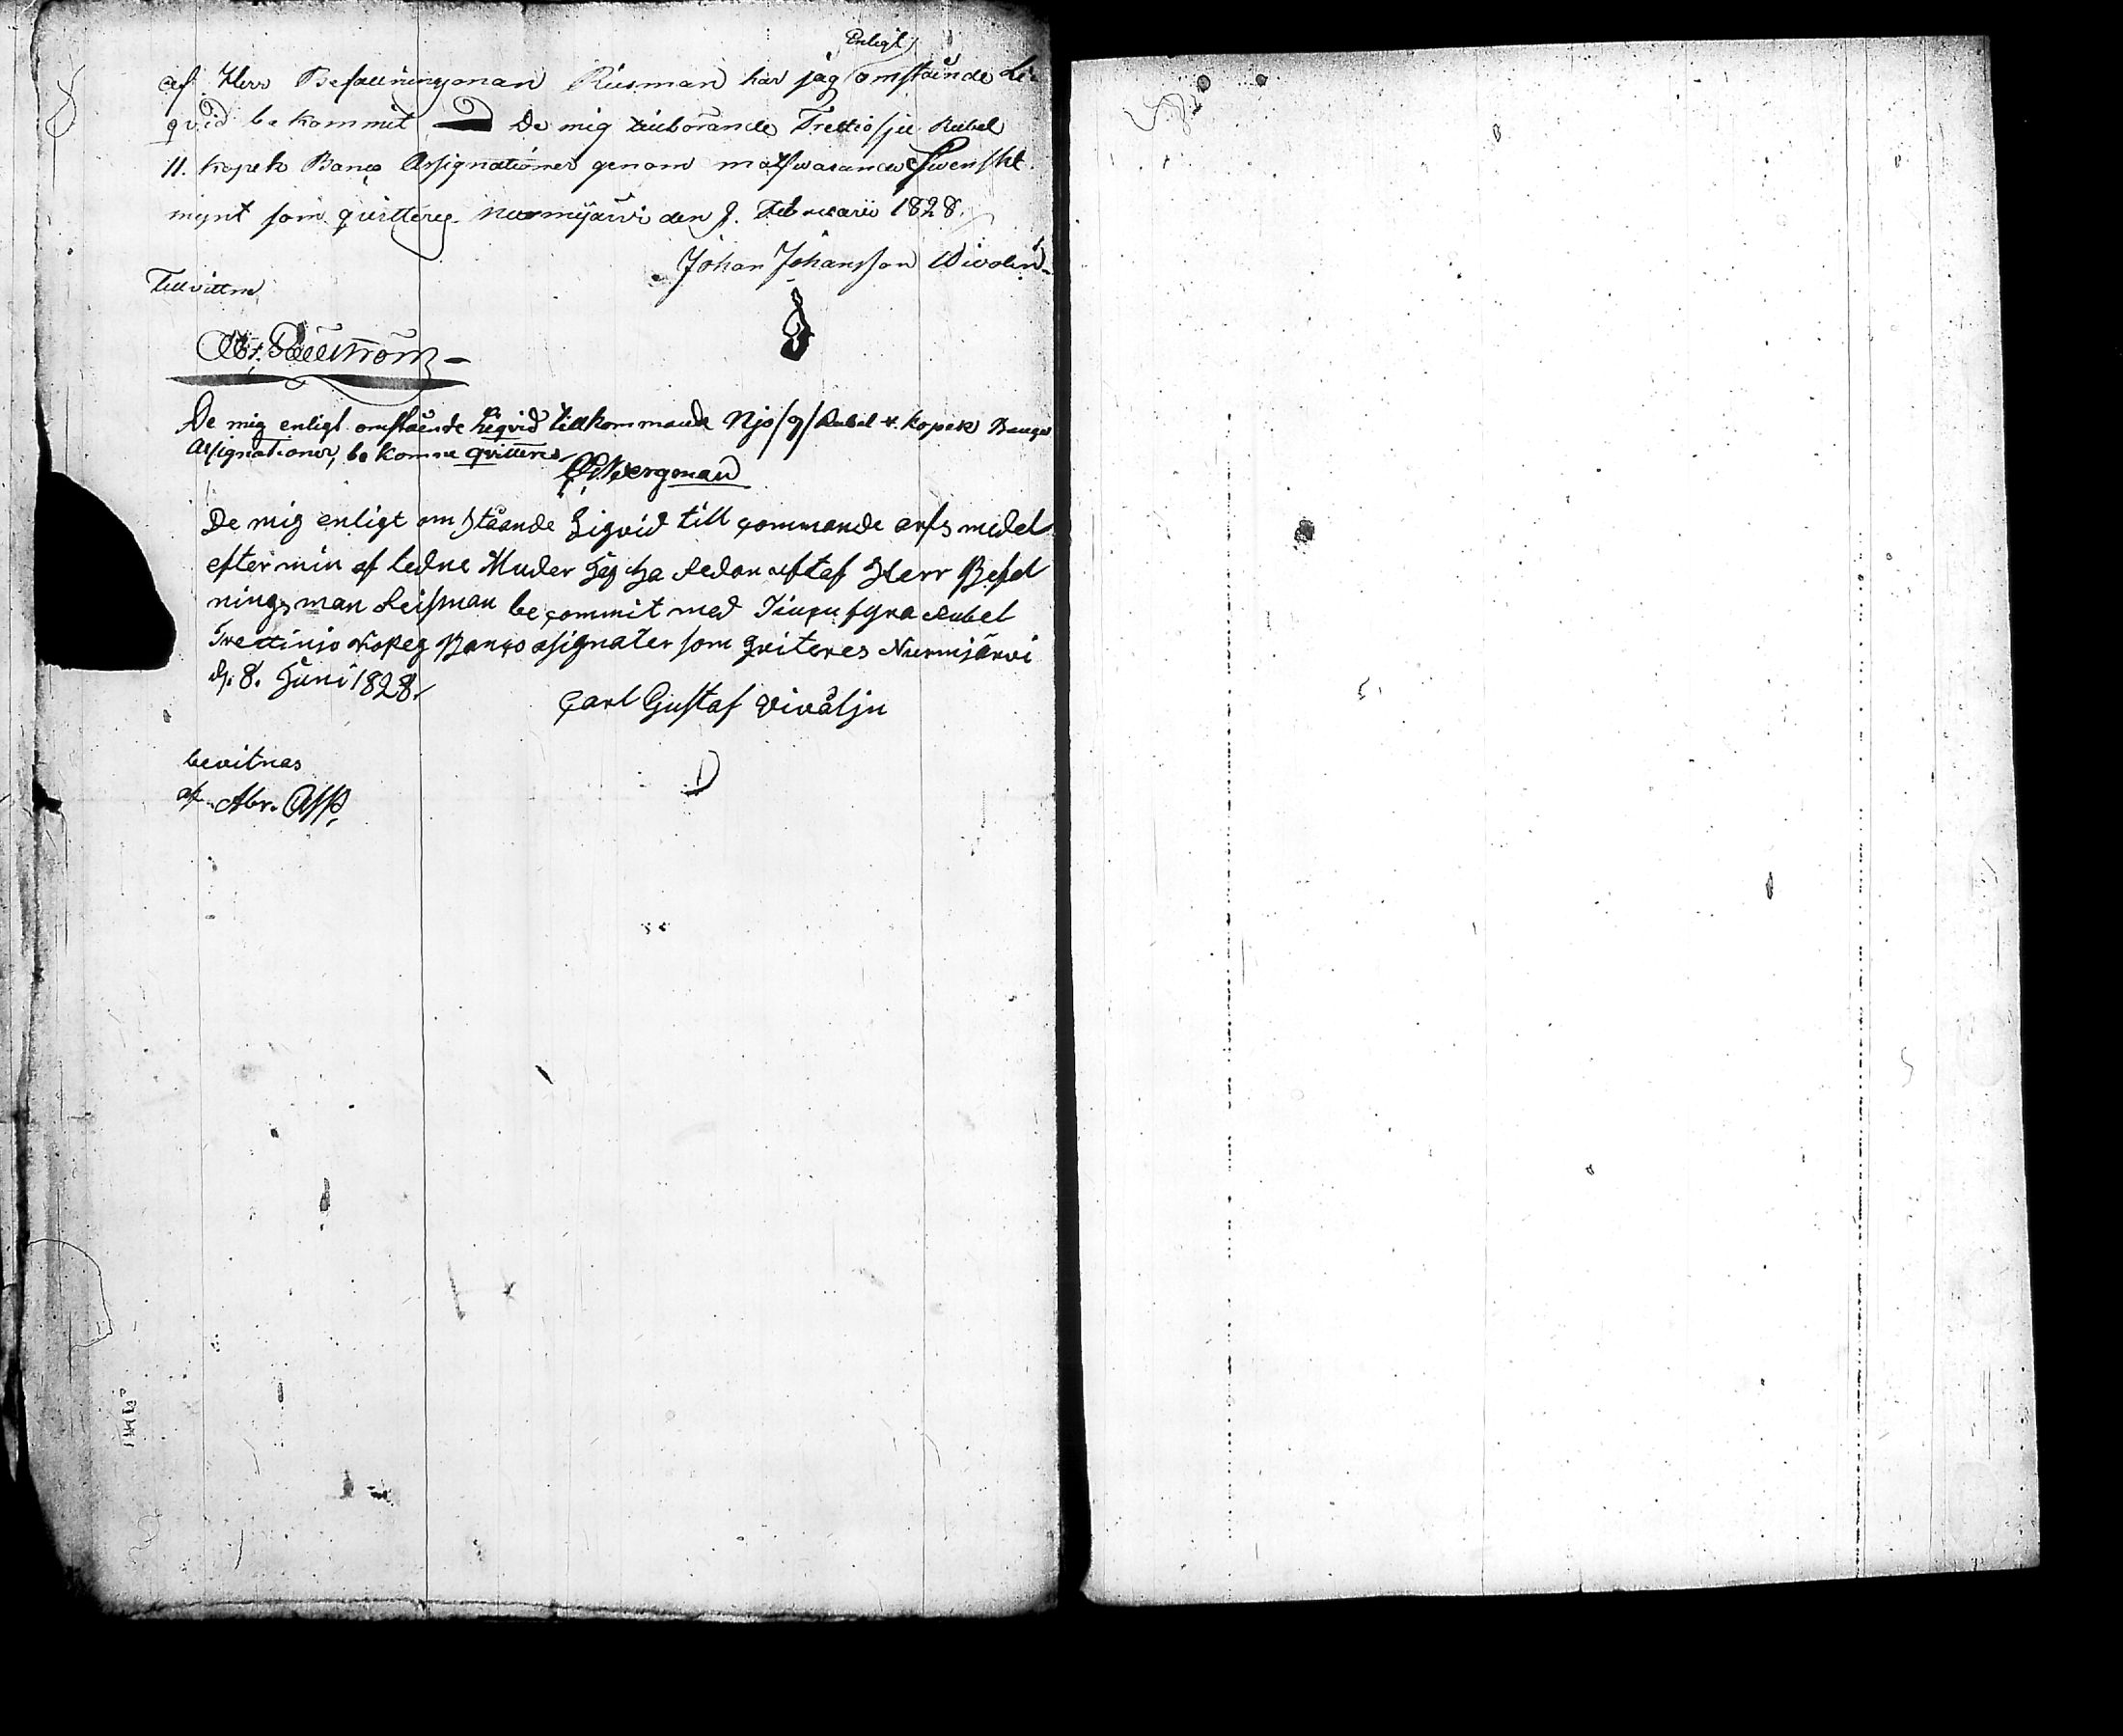 Enligt
af Herr Befallningsman Riisman har jag omstående Li-
qvid bekommit De mig tillhörande Trettiosju Rubel
11. kopek Banco Assignationer genom motswarande Swenskt
mynt som qvitteras Nurmijärvi den 9. Februarii 1828.
Johan Johansson Wivolin
Till vittne
De mig enligt omstående Liqvid tillkommande Njo/9/ Rubel 4. Kopek Banco
Assignationer, bekomne qvitteras
Bergman
De mig enligt omståande Liqvid till commande arfs medel
efter min af ledne Muder Jag ha Redan af Herr Befal
nings man Reisman becommit med Tiugufyra Rubel
Trettinio Kopeg Banco asignater som qviteres Nurmijärvi
d. 8. Juni 1828.
Carl Gustaf vivåljn
bevitnas
af Abr. Asp